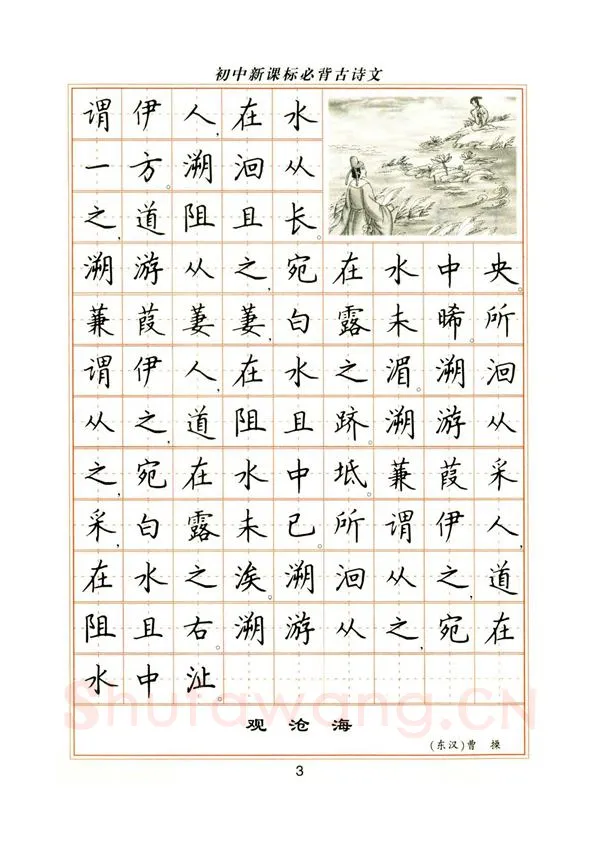 初中新课标必背古诗文
谓伊人，在水
一方。溯洄从
之，道阻且长。
溯游从之，宛在水中央。
蒹葭萋萋，白露未晞。所
谓伊人，在水之湄。溯洄
从之，道阻且跻。溯游从
之，宛在水中坻。蒹葭采
采，白露未已。所谓伊人，
在水之涘。溯洄从之，道
阻且右。溯游从之，宛在
水中沚。
Shufawang.CN
观沧海
(东汉)曹 操
3